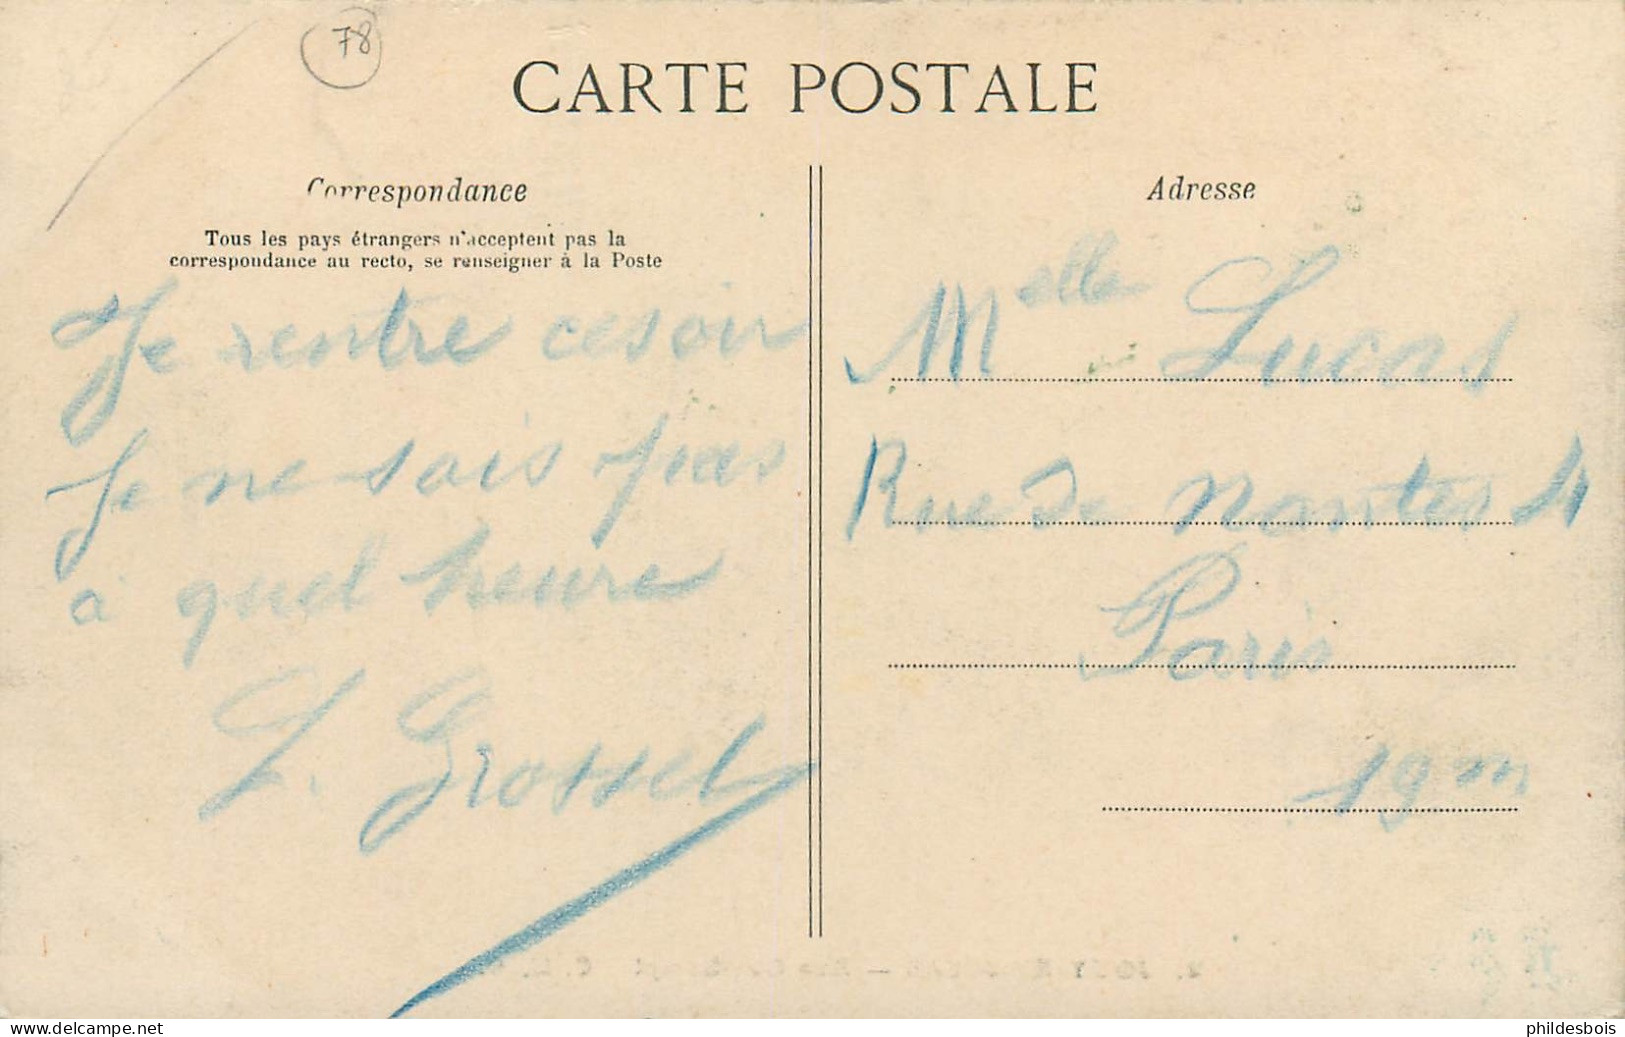 78
CARTE POSTALE
Correspondance
Tous les pays étrangers n'acceptent pas la
correspondance au recto, se renseigner à la Poste
Je rentre ce soir
Je ne sais pas
à quel heure
L. Grossel
Adresse
Melle Lucas
Rue de Nantes 4
Paris
19m
www.delcampe.net
phildesbois